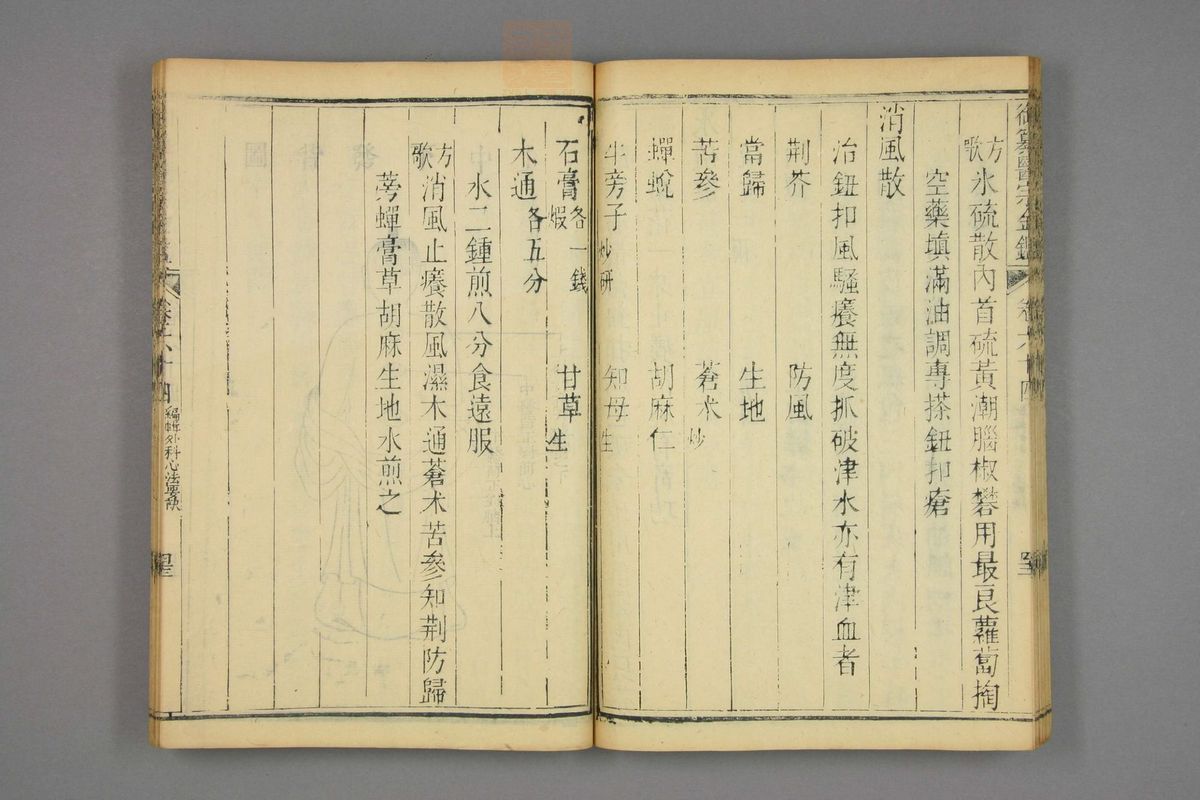 御纂醫宗金鑑 卷六十四
方歌 氷硫散內首硫黃潮腦椒礬用最良蘿蔔掏
空藥塡滿油調專搽鈕扣瘡
消風散
治鈕扣風騷癢無度抓破津水亦有津血者
荆芥 防風
當歸 生地
苦參 蒼术炒
蟬蛻 胡麻仁
牛旁子炒研 知母生
石膏煅各一錢 甘草生
木通各五分
水二鍾煎八分食遠服
方歌 消風止癢散風濕木通蒼术苦參知荆防歸
蒡蟬膏草胡麻生地水煎之
卷六十四 編輯外科心法要訣